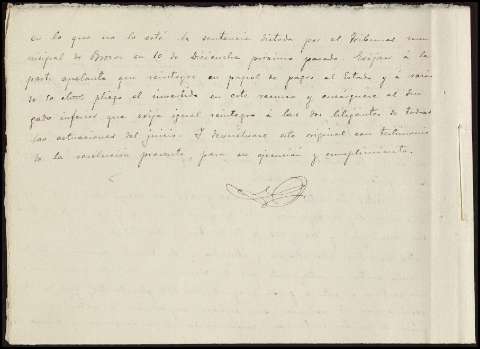 en lo que no lo esté la sentencia dictada por el Tribunal mu-
nicipal de en 10 de Diciembre proximo pasado. Exijase á la
parte apelante que reintegre en papel de pagos al Estado y á razón
de la clase pliego el invertido en este recurso y al Juz
gado inferior que exija igual reintegro á los dos litigantes de todas
las actuaciones del juicio. Y devuelvase este original con testimonio
de la resolución presente, para su ejecución y cumplimiento.